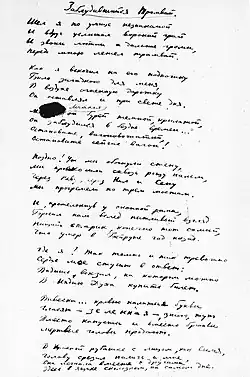 Заблудившийся трамвай.
Шел я по улице незнакомой
И вдруг услышал вороний грай
И звоны лютни и дальние громы,
Передо мною летел трамвай.
Как я вскочил на его подножку
Было загадкою для меня
В воздухе огненную дорожку
Он оставлял и при свете дня
Мчался он бурей темной, крылатой,
Он заблудился в бездне времен...
Остановите, вагоновожатый,
Остановите сейчас вагон!
Поздно! Уж мы обогнули стену,
Мы проскочили сквозь рощу пальм,
Через Неву, через Нил и Сену
Мы прогремели по трем мостам.
И, промелькнув у оконной рамы,
Бросил нам вслед пытливый взгляд
Нищий старик, конечно тот самый,
Что умер в Бейруте год назад.
Где я? Так томно и так тревожно
Сердце мое стучит в ответ:
Видишь вокзал, на котором можно
В Индию Духа купить билет.
Вывеска... кровью налитые буквы
Гласят — зеленная — знаю, тут
Вместо капусты и вместо брюквы
Мертвые головы продают.
В красной рубашке с лицом, как вымя,
Голову срезал палач и мне
Она лежала вместе с другими
Здесь в ящике скользком, на самом дне.